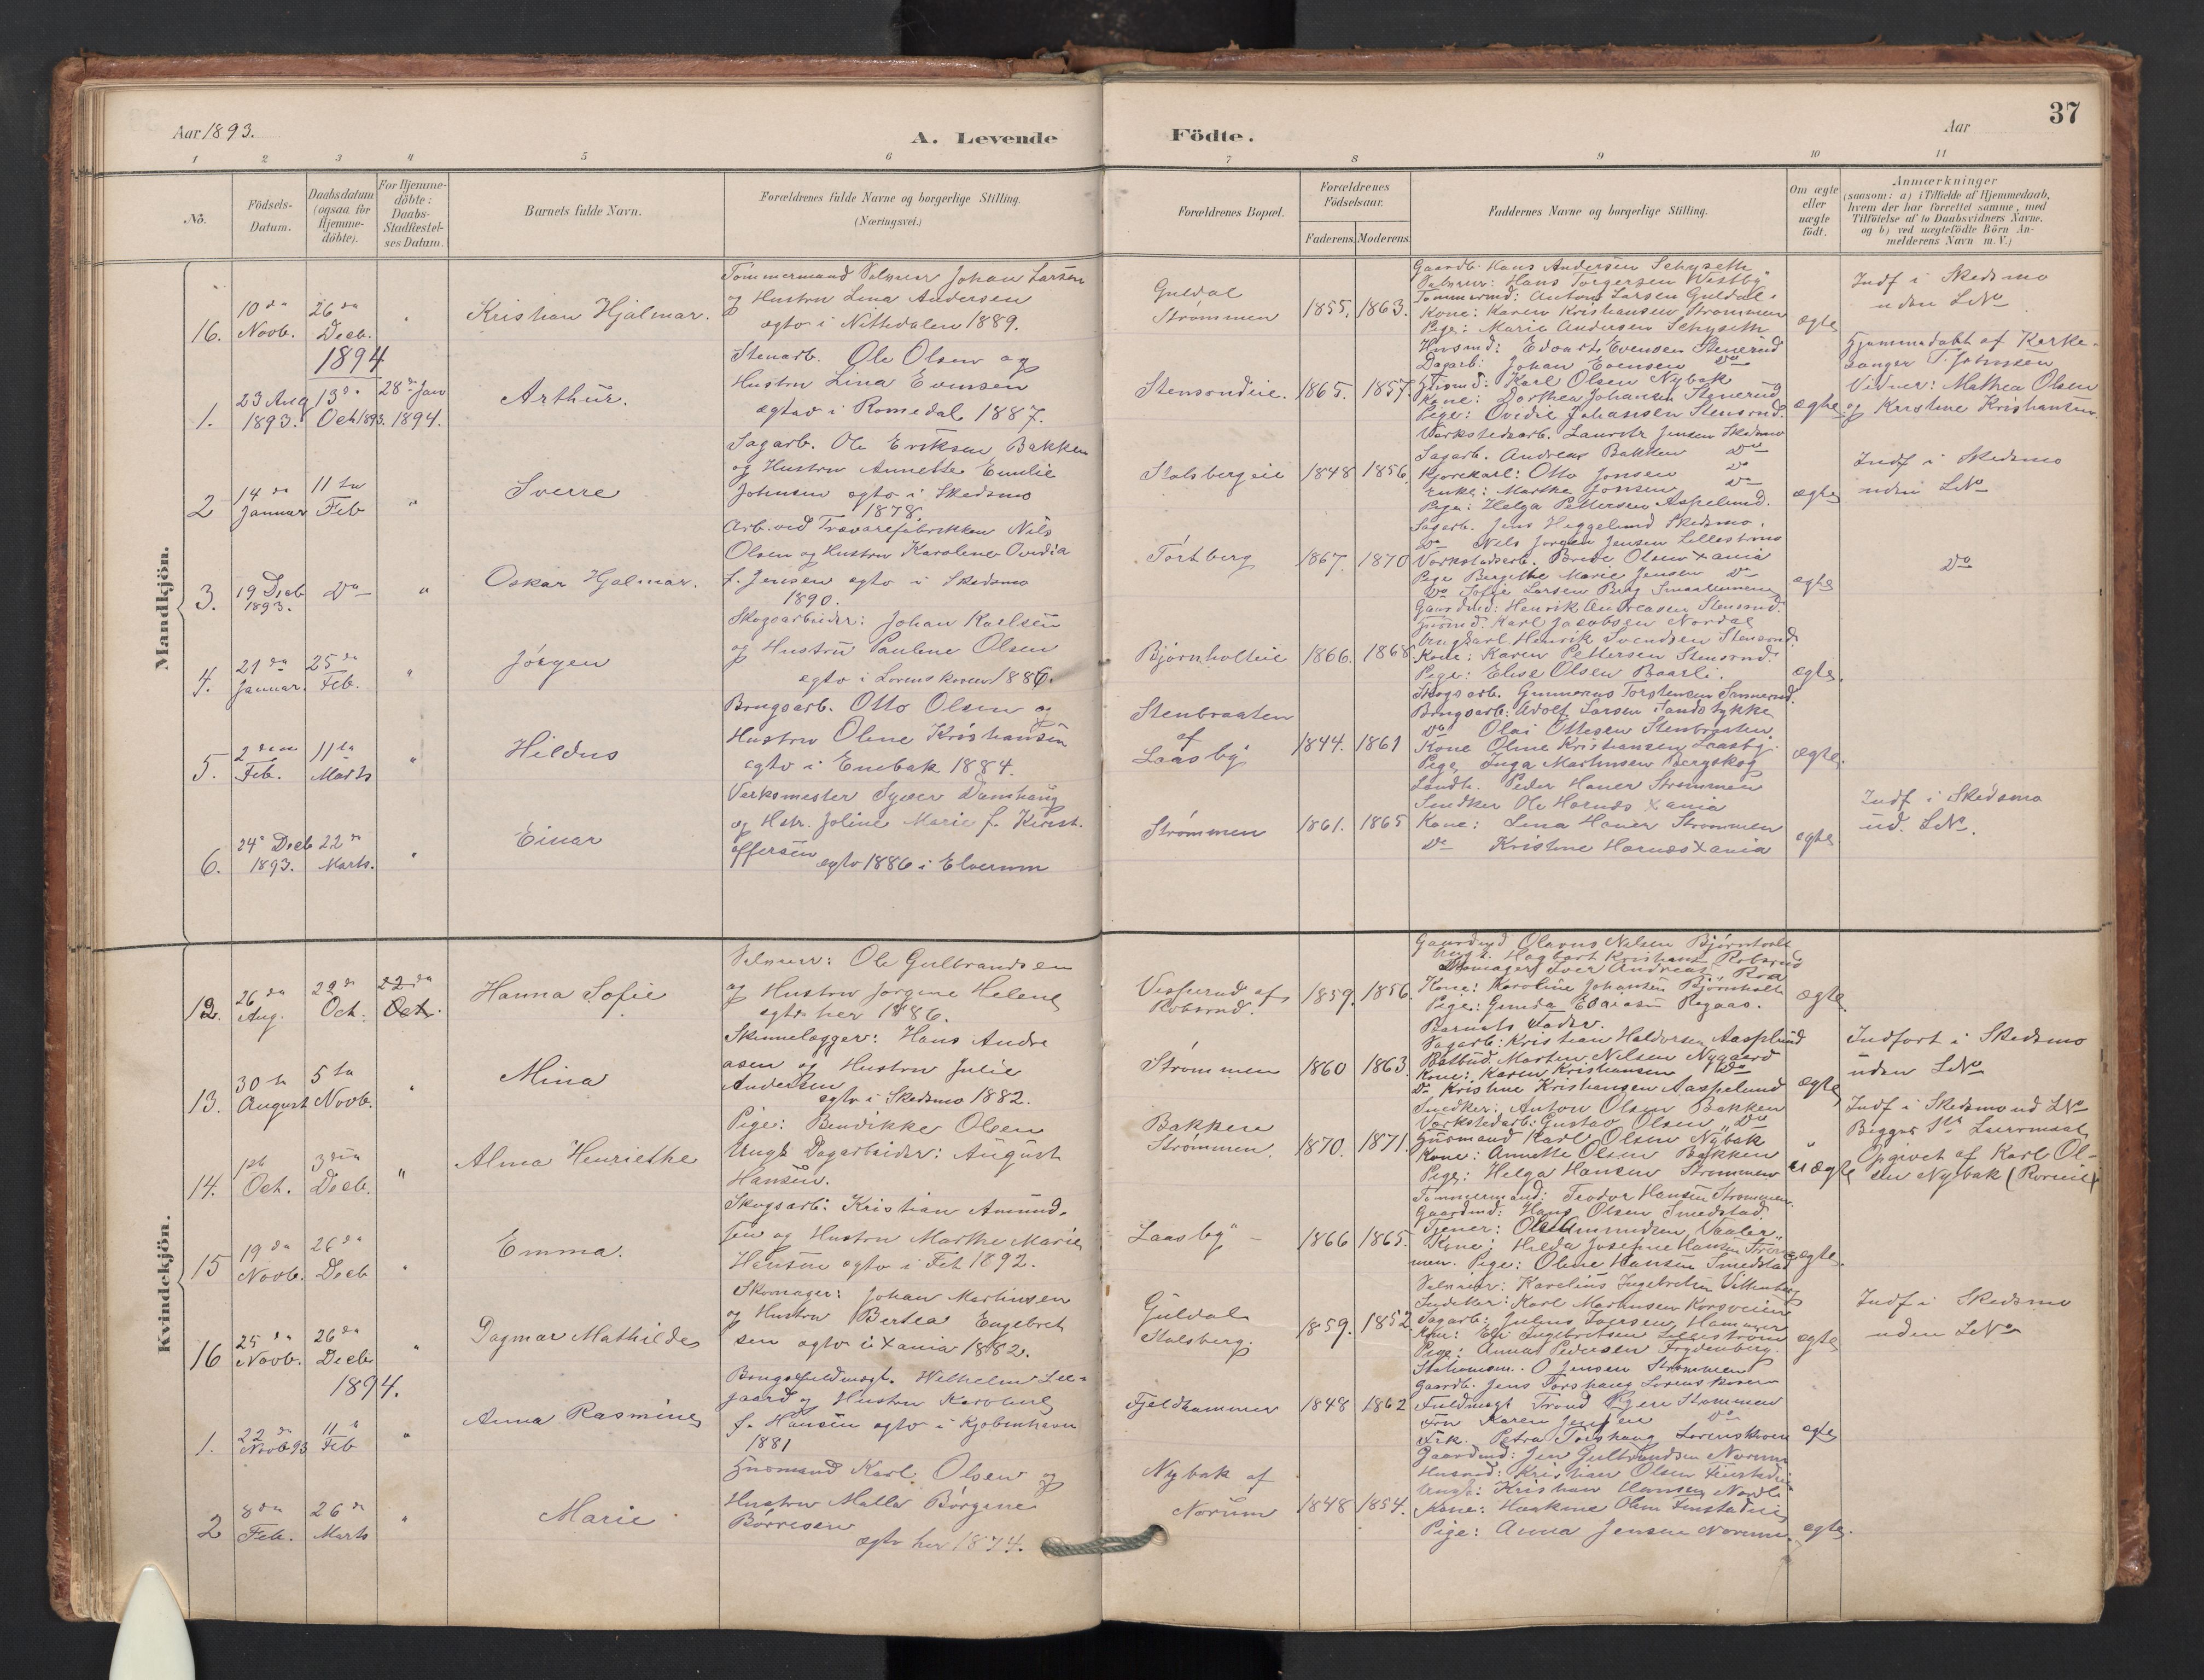 Aar 1893.
A. Levende Födte.
Aar
37
1 2 3 4 5 6 7 8 9 10 11
No.
Födsels-Datum.
Daabsdatum (ogsaa for Hjemme-döbte).
For Hjemme-döbte: Daabs-Stadfæstel-ses Datum.
Barnets fulde Navn.
Forældrenes fulde Navne og borgerlige Stilling.
(Næringsvei.)
Forældrenes Bopæl.
Forældrenes Födselsaar.
Faderens. Moderens.
Faddernes Navne og borgerlige Stilling.
Om ægte eller uægte födt.
Anmærkninger
(saasom: a) i Tilfælde af Hjemmedaab,
hvem der har forrettet samme, med
Tilföielse af to Daabsvidners Navne.
og b) ved uægtefödte Börn An-
melderens Navn m. V.)
Mandkjön.
16. 10de Novb. 26de Decb. "
Kristian Hjalmar.
Tømmermand Johan Larsen
og Hustru Lina Andersen
egtv i Nittedalen 1889.
Guldal
Strømmen
1855. 1863.
Gaardb. Hans Andersen
Hans Torgersen Westby
Tømmermd: Anton Larsen Guldal.
Kone: Karen Kristiansen Strømmen
Pige: Marie Andersen
ægte
Indf i Skedsmo
uden LNo
1894
1. 23 Aug 1893. 13de Oct 1893. 28de Jan 1894.
Arthur.
Stenarb. Ole Olsen og
Hustru Lina Evensen
egtev i Romedal 1887.
Stensrudeie. 1865. 1857.
Husmd: Edvart Evensen Stenerud
Dagarb: Johan Evensen Do
Husmd: Karl Olsen Nybak
Kone: Dorthea Johansen Stenerud
Pige: Ovidie Johansen Stensrud.
ægte
Hjemmedøbt af Kirke-
sanger T. Johnsen
Vidner: Mathea Olsen
og Kristine Kristiansen.
2 14de Januar 11te Feb "
Sverre
Sagarb. Ole Eriksen Bakken
og Hustru Annette Emilie
Johnsen egtv i Skedsmo
1878.
Stalsbergeie 1848 1856.
Værkstedsarb. Lauritz Jensen Skedsmo
Sagarb. Andreas Bakken Do
Kjørekarl: Otto Jonsen Do
Enke: Marthe Jonsen Do
Pige: Helga Pettersen Aspelund.
ægte
Indf i Skedsmo
uden LNo
3. 19 Decb 1893. Do "
Oskar Hjalmar.
Arb. ved Trævarefabrikken Nils
Olsen og Hustru Karoline Ovidia
f. Jensen egtv i Skedsmo
1890.
Tortberg 1867. 1870
Sagarb. Jens Heggelund Skedsmo.
Do Nils Jørgen Jensen Lillestrøm
Værkstedsarb. Brede Olsen Xania
Pige Bergithe Marie Jensen Do
Do Sofie Larsen Berg Smaalenene
ægte
Do
4. 21de Januar. 25de Feb. "
Jørgen
Skogsarbeider: Johan Karlsen
og Hustru Pauline Olsen
egtv i Lørenskoven 1886.
Bjørnholteie 1866. 1868
Gaardmd: Henrik Andreasen Stensrud.
Husmd. Karl Jacobsen Nordal
Ungkarl Henrik Svendsen Stensrud.
Kone: Karen Pettersen Stensrud.
Pige: Elise Olsen Baarli.
ægte.
5. 2den Feb. 11te Marts "
Hildus
Brugsarb. Otto Olsen og
Hustru Oline Kristiansen
egtv i Enebak 1884.
Stenbraaten
af
Laasby
1844. 1861
Skogsarb. Gunnerius Torstensen
Brugsarb: Adolf Larsen Sandstykke
Do Olai Ottesen Stenbraaten.
Kone Oline Kristiansen Laasby.
Pige Inga Martinsen Bergskog
ægte.
6. 24de Decb 1893. 22de Marts. "
Einar
Verksmester Syver Damhaug
og Hstr. Joline Marie f. Krist-
offersen
egtv 1886 i Elverum
Strømmen 1861. 1865
Landh. Peder Hauer Strømmen
Snedker Ole Hornæs Xania
Kone: Lina Hauer Strømmen
Do Kristine Hornæs Xania
ægte
Indf i Skedsmo
ud. LNo.
Kvindekjön.
12. 26de Aug. 22de Oct. 22de Oct.
Hanna Sofie
Ole Gulbrandsen
og Hustru Jørgine Helene
egtv her 1886.
af
Robsrud.
1859. 1856.
Gaardmd Olavus Nilsen Bjørnholt
Ungk. Hagbart Kristians. Robsrud
Skomager Iver Andreas. Roa
Kone: Karoline Johansen Bjørnholt
Pige: Gunda
ægte.
13. 30te August 5te Novb. "
Mina
Skinnelægger: Hans Andre
asen og Hustru Julie
Andersen
egtv i Skedsmo 1882.
Strømmen 1860 1863.
Barnets Fader.
Sagarb: Kristian Haldorsen Aaspelund
Martin Nilsen Nygaard
Kone: Karen Kristiansen Do
Do Kristine Kristiansen Aaspelund
ægte
Indført i Skedsmo
uden LNo
14. 1ste Oct. 3die Decb. "
Alma Henriethe
Pige: Benedikke Olsen
Ungk Dagarbeider: August
Hansen.
Bakken
Strømmen.
1870. 1871.
Snedker: Anton Olsen Bakken
Værkstedarb: Gustav Olsen Do
Husmand Karl Olsen Nybak
Kone: Annette Olsen Bakken
Pige: Helga Hansen Strømmen
uægte
Indf i Skedsmo ud LNo
Begges 1ste Leiermaal
Opgivet af Karl Ol-
sen Nybak
15 19de Novb. 26de Decb "
Emma.
Skogsarb: Kristian Amund-
sen og Hustru Marthe Marie
Hansen egtv i Fet 1892.
Laasby 1866 1865.
Tømmermand: Teodor Hansen Strømmen.
Gaardmd: Hans Olsen Smedstad.
Tjener: Ole Amundsen Vaaler.
Kone: Hilda Josefine Hansen Strøm-
men. Pige: Oline Hansen Smedstad
ægte.
16 25de Novb. 26de Decb "
Dagmar Mathilde
Skomager: Johan Martinsen
og Hustru Bertea Engebret
sen egtv i Xania 1882.
Guldal
Stalsberg.
1859. 1852.
Karelius Ingebretsen
Snedker: Karl Martinsen Korsveien
Sagarb: Julius Iversen Hammer
Kone: Eli Ingebretsen Lillestrøm
Pige: Anna Pedersen Frydenberg.
ægte
Indf i Skedsmo
uden LNo
1894.
1. 22de Novb 93 11te Feb "
Anna Rasmine
Brugsfuldmægt. Wilhelm
og Hustru Karoline
f. Hansen egtv i Kjøbenhavn
1881
Fjeldhammer 1848 1862
Stationsm. O Jensen Strømmen
Gaardb. Jens Torshaug Lørenskoven
Fuldmægt Trond Strømmen
Fru Karen Jensen Do
Frk. Petra Torshaug Lørenskoven
ægte
2 8de Feb. 26de Marts "
Marie
Husmand Karl Olsen og
Hustru Børgine
Børresen
egtv her 1874.
Nybak af
Norum
1848 1854.
Gaardmd: Gulbrandsen Norum
Husmd: Kristian Olsen
Ungk: Kristian Hansen
Kone: Olsen
Pige: Anna Jensen Norum.
ægte.